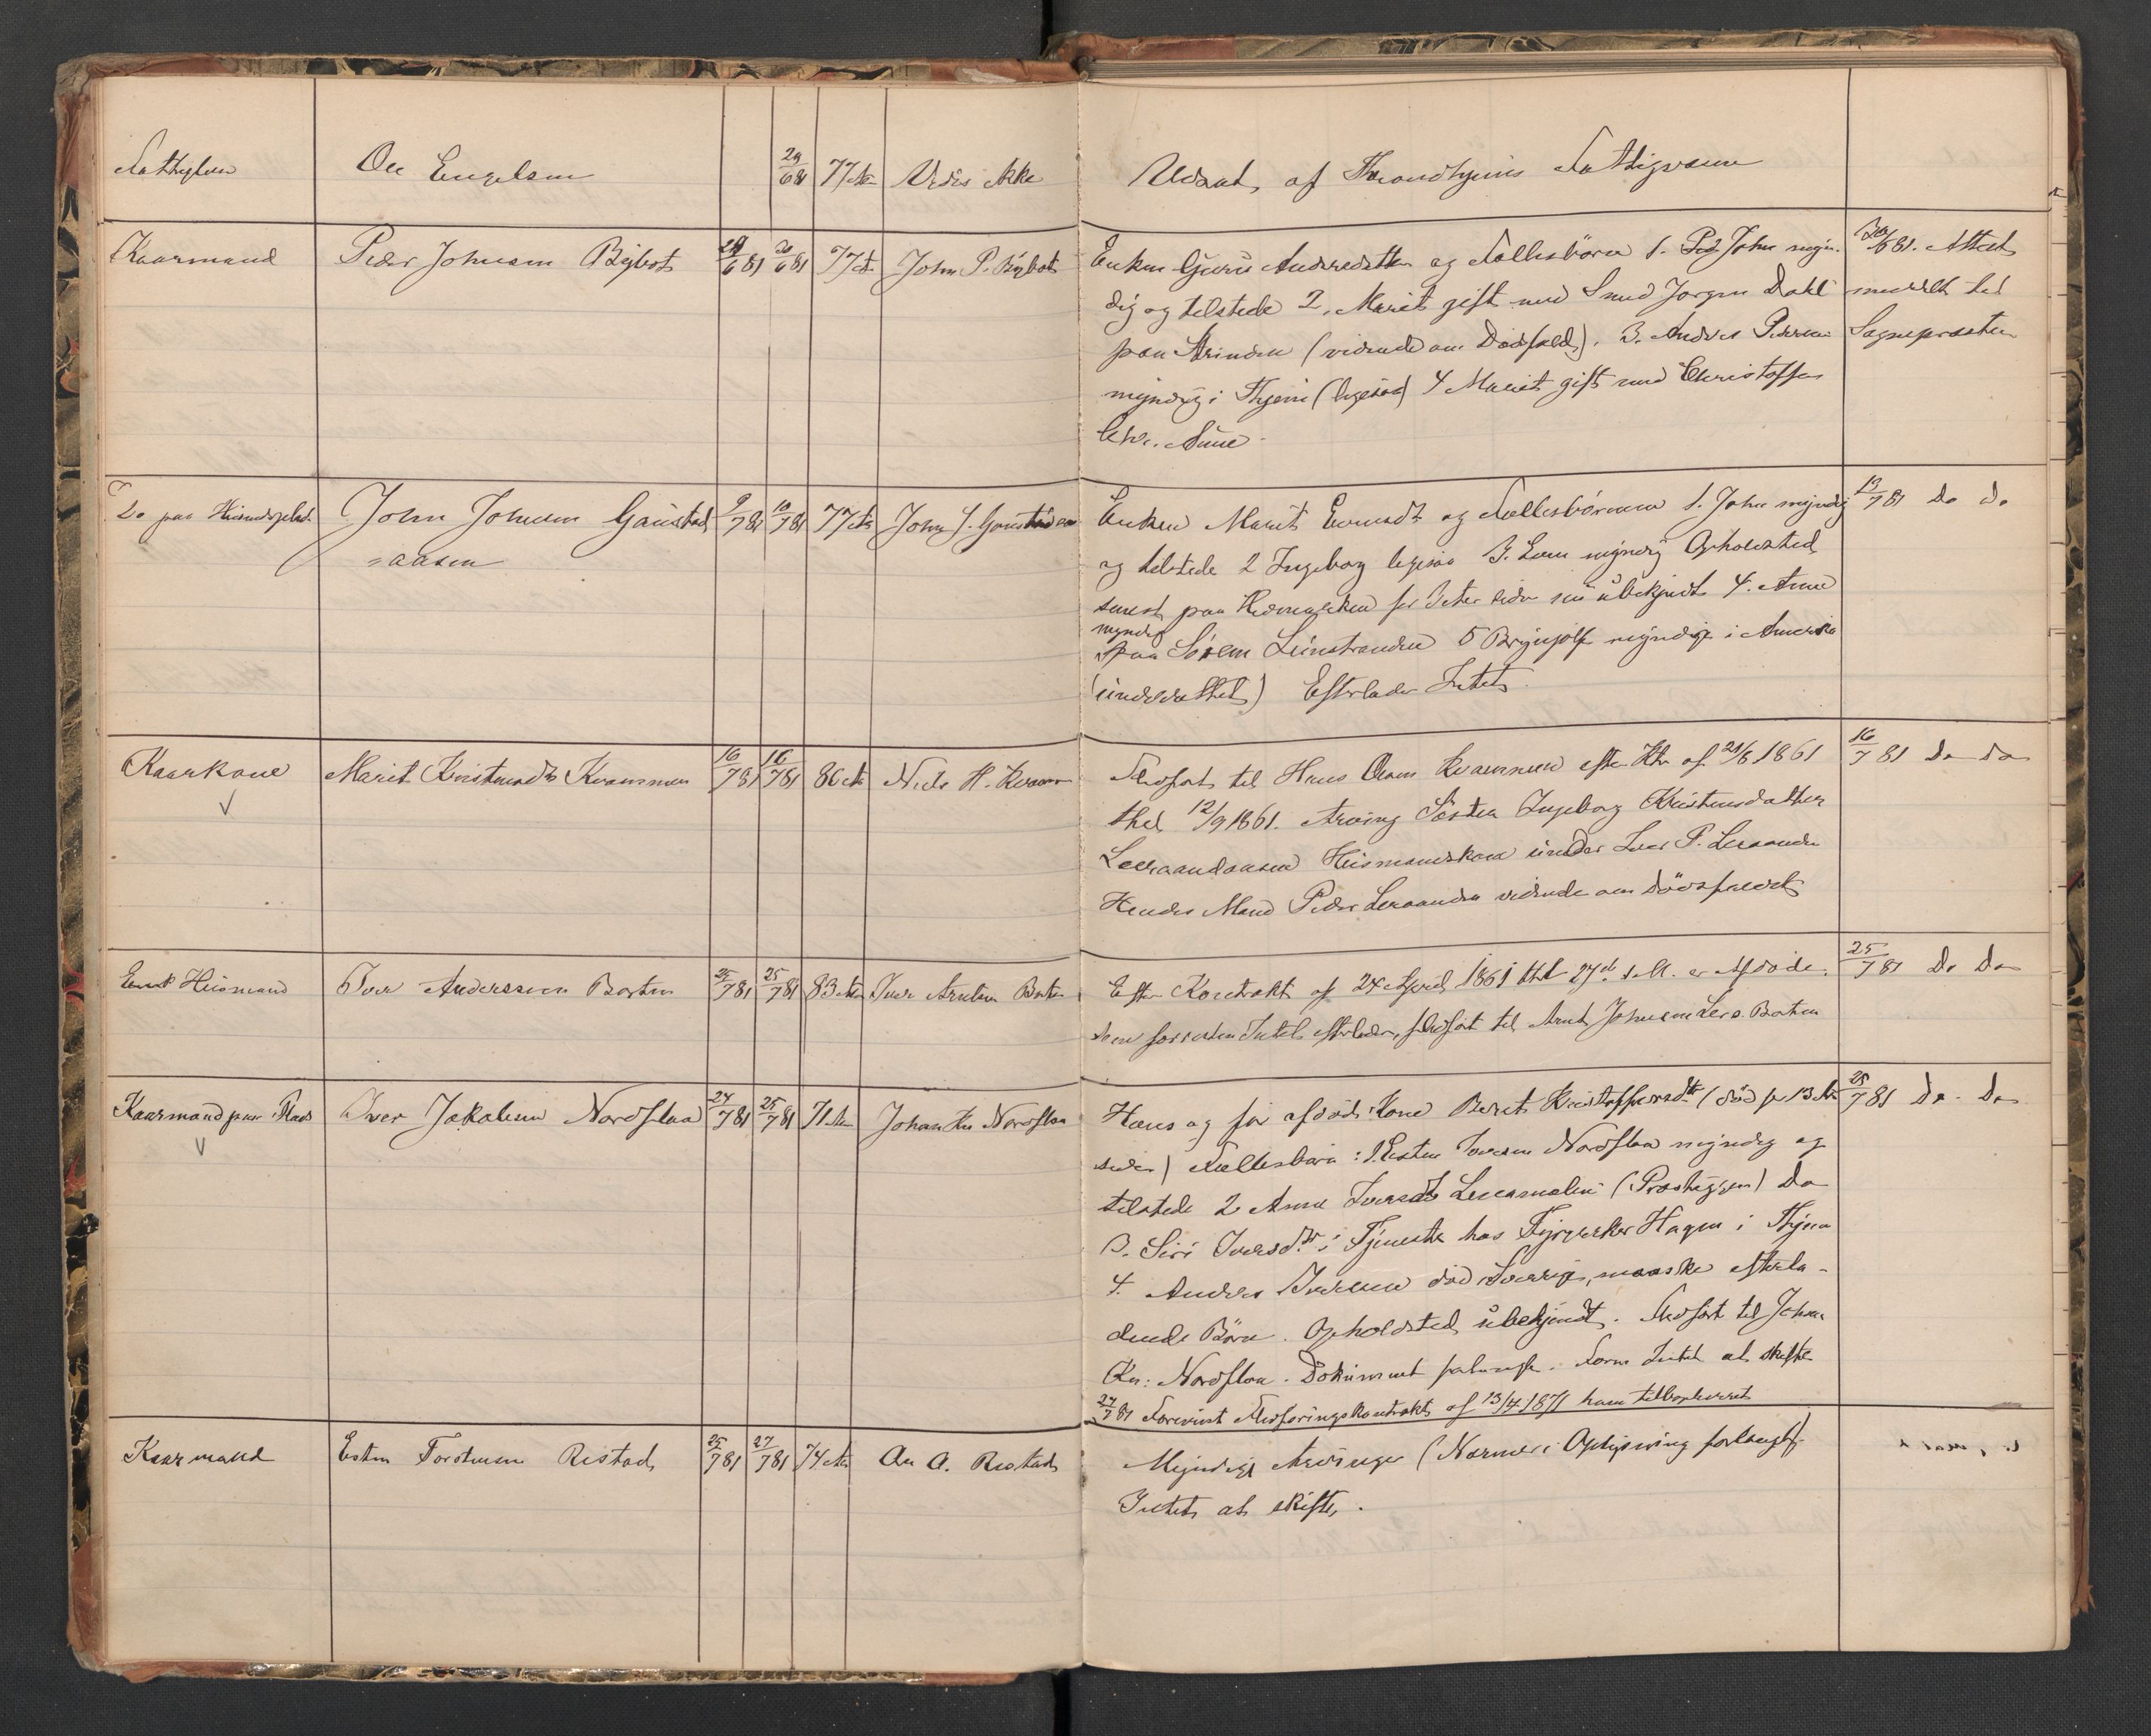 Ole Engelsen 29/6 81 77 Aar
Udsat af Throndhjems Fattigvæsen
Kaarmand Peder Johnsen Bybot 20/6 81 77 Aar John P. Bybot
Enken Guru Andersdatter og Fællesbörn 1. John myn-
dig og tilstede 2, Marit gift med Smed Jörgen Dahl
paa Strinden (vidende om Dödsfald). 3. Anders Pedersen
myndig i Thjem (ligesaa) 4 Marit gift med Christoffer
Chr. Aune
20/6 81. Attest
meddelt til
Sognepræsten
Do paa Husmandsplads John Johnsen Gaustad 9/7 81 10/7 81 77 Aar John J. Gaustadaas
=aasen
Enken Marit Evensdt og Fællesbörnene 1. John myndig
og tilstede 2 Ingeborg ligesaa 3. myndig Opholdsted
senest paa Hedemarken for Aar siden nu ubekjendt 4. Anne
myndig
paa Leinstranden 5 Brynjolf myndig i Amerika
(underrettet) Efterlader Intet
13/7 81 Do Do
Kaarkone Marit Kristensdtr Kvammen 16/7 81 16/7 81 86 Aar Niels H. Kvam
Flödfört til Hans Olsen Kvammen efter Ktr af 21/6 1861
thl 12/9 1861. Arving Söster Ingeborg Kristensdatter
Leeraandaasen Husmandskone under Iver P. Leraanden
Hendes Mand Peder Leraanden vidende om Dödsfaldet
16/7 81 Do Do
Husmand Iver Anderssen Bosten 25/7 81 25/7 81 83 Aar Iver Arntsen Bosten
Efter Kontrakt af 24 April 1861 thl 27d. s. M. er Afdöde,
som forresten Intet efterlader, flödfört til Arnt Johnsen Bosten
25/7 81 Do Do
Kaarmand paa Plads Iver Jakobsen Nordflaa 24/7 81 25/7 81 71 Aar Johan Kn Nordflaa
Hans og för afdöde Kone Beret Kristoffersdtr (död for 13 Aar
siden) Fællesbörn: 1. Esten Iversen Nordflaa myndig og
tilstede 2 Anne Iversdtr (Præstegjen) Do
3. Siri Iversdtr i Tjeneste hos Hagen i Thjem
4. Anders Iversen död i Sverige, maaske efterla-
dende Börn. Opholdsted ubekjendt. Flödfört til Johan
Kn: Nordflaa. Dokument forlangt. Intet at skifte
27/7 81 Forevist Flödföringskontrakt af 13/4 1871 ham tilbageleveret
28/7 81 Do Do
Kaarmand Esten Torstensen Ristad 25/7 81 27/7 81 74 Aar Ole O. Ristad
Myndige Arvinger (Nærmere Oplysning forlangt)
Intet at skifte.